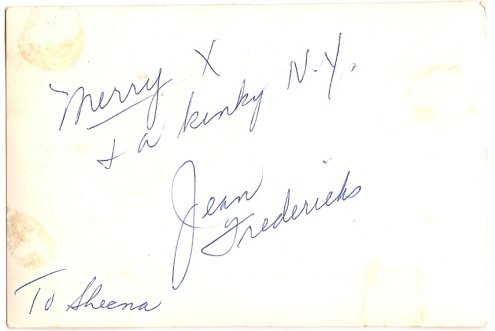 Merry X
+ a kinky N.Y.
Jean
Fredericks
To Sheena